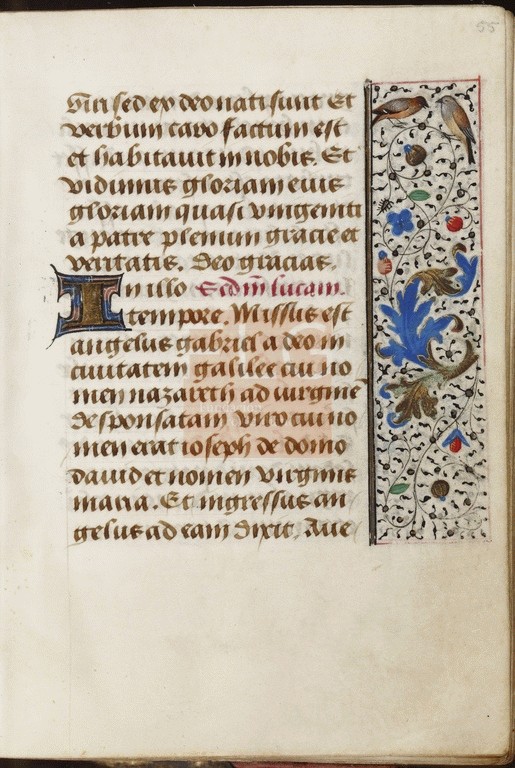 55
viri sed ex deo nati sunt Et
verbum caro factum est
et habitavit in nobis. Et
vidimus gloriam eius
gloriam quasi unigeniti
a patre plenum gracie et
veritatis. Deo gracias.
In illo Scdm lucam.
tempore. Missus est
angelus gabriel a deo in
civitatem galilee cui no
men nazareth ad virginē
desponsatam viro cui no
men erat ioseph de domo
david et nomen virginis
maria. Et ingressus an
gelus ad eam dixit. Ave